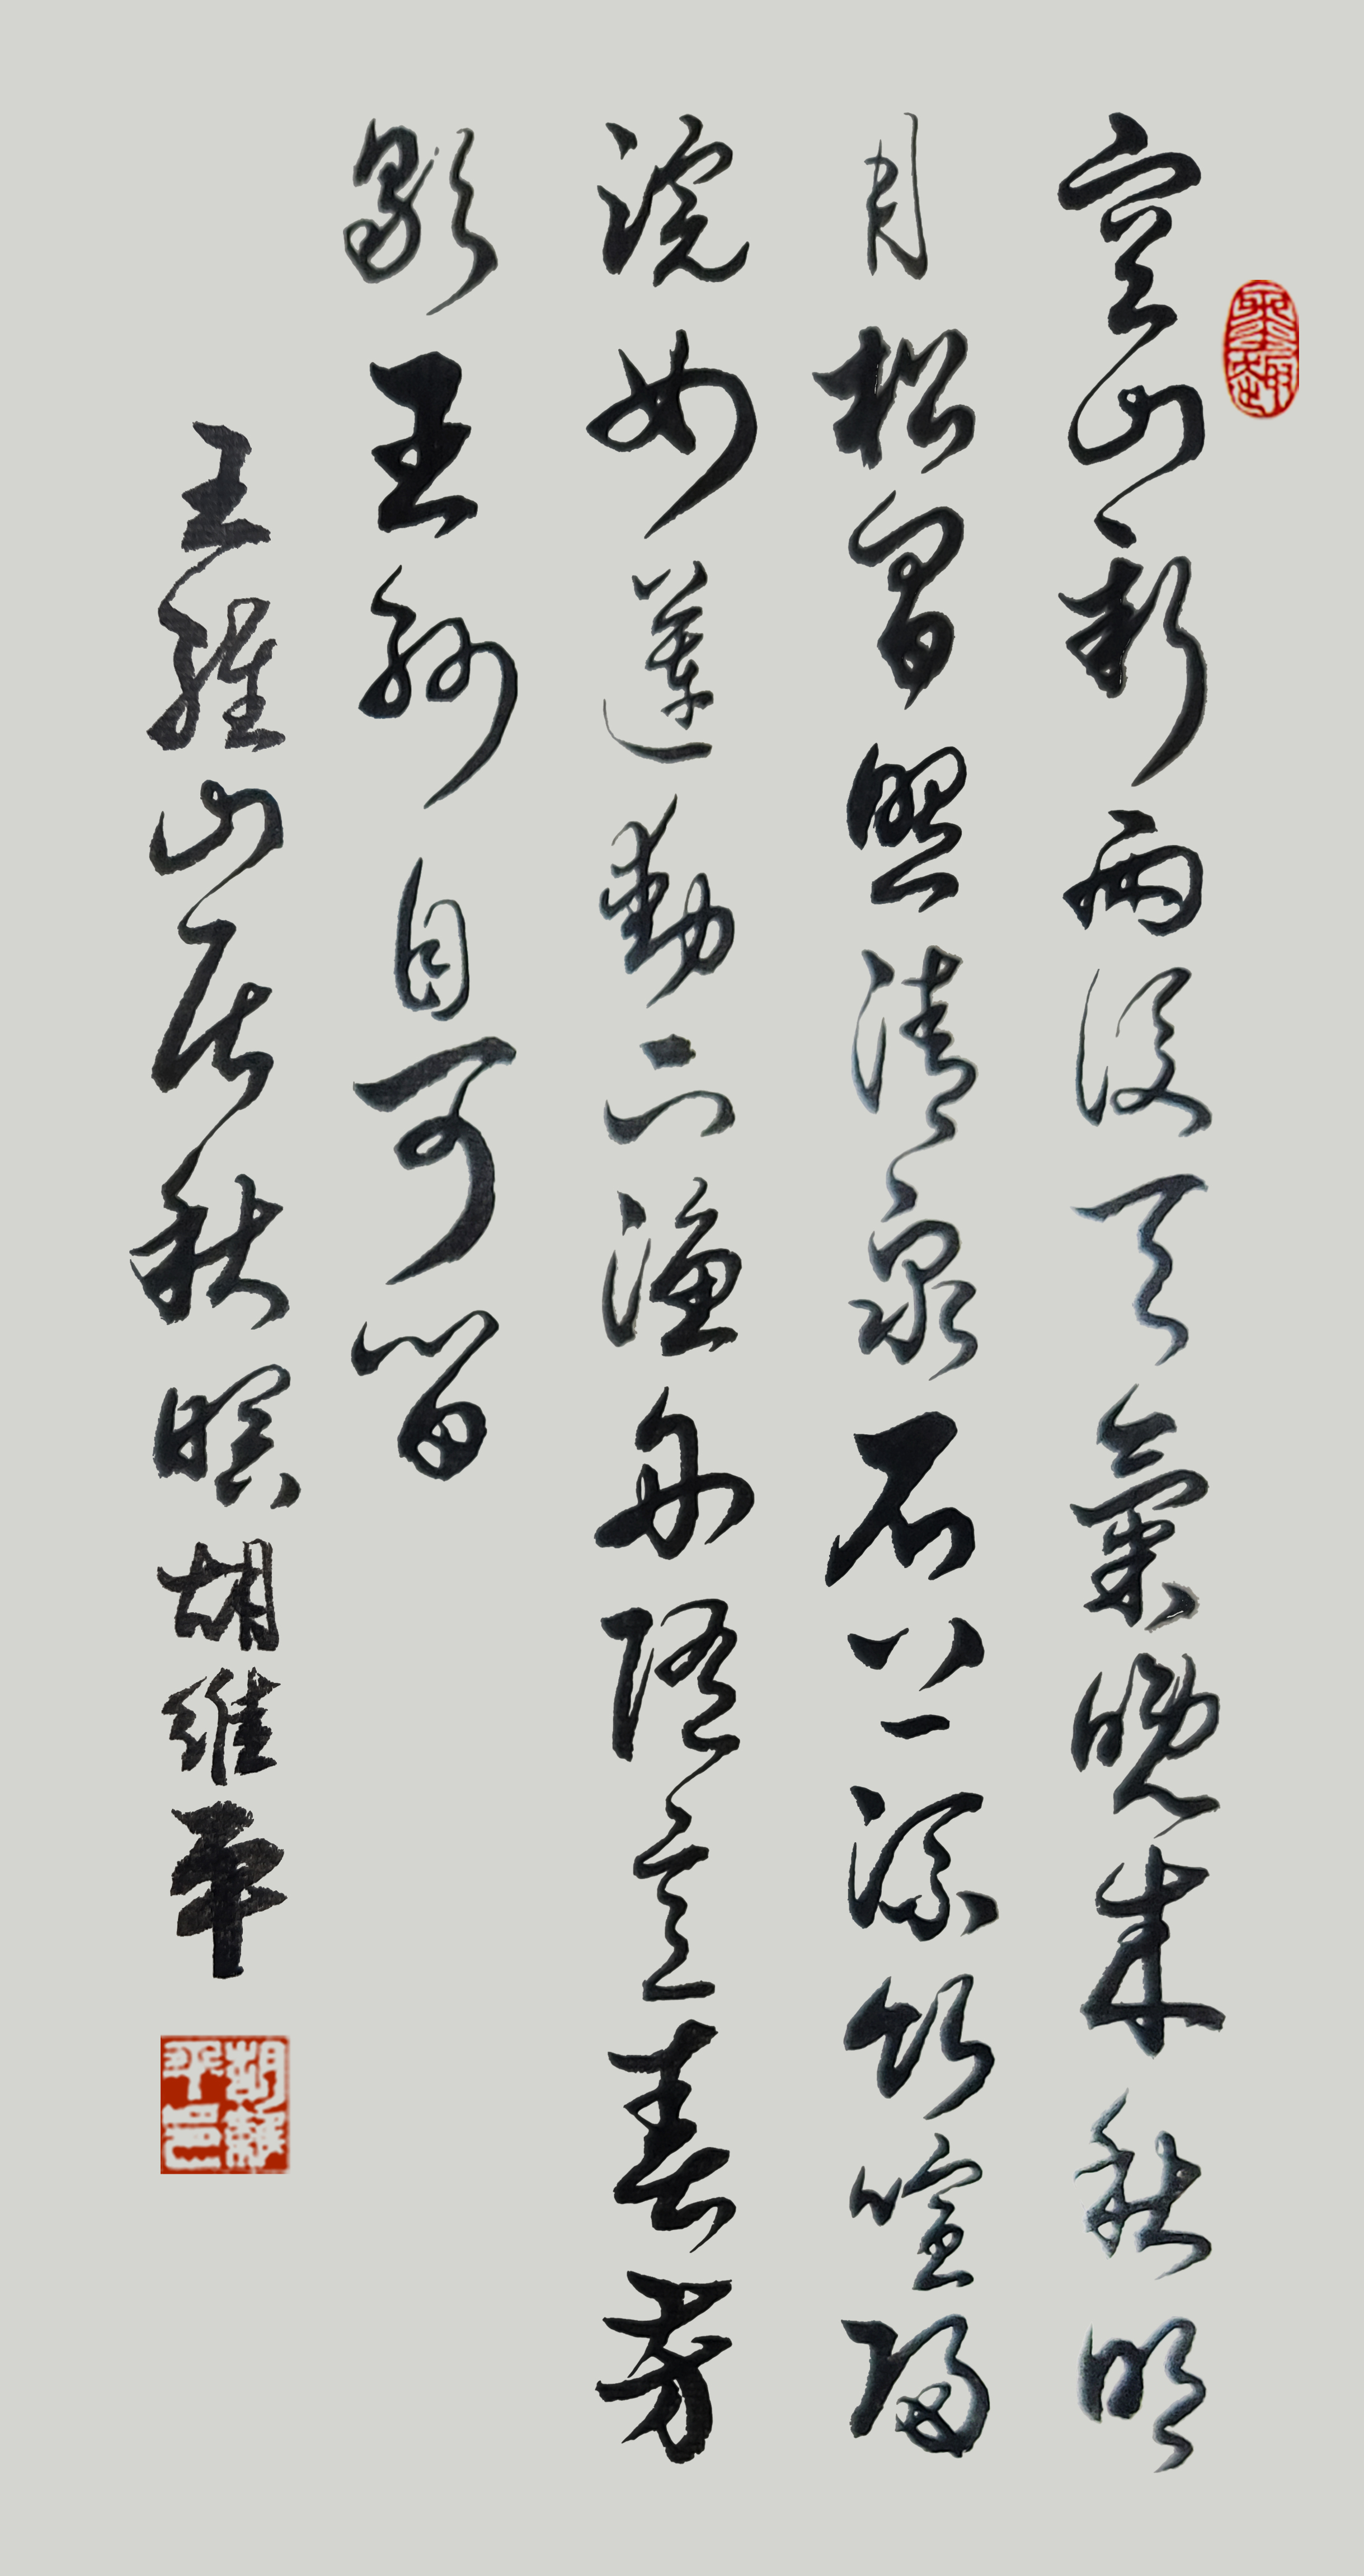 空山新雨後天氣晚来秋明
月松間照清泉石上流竹喧歸
浣女蓮動下漁舟隨意春芳
歇王孫自可留
王維山居秋暝胡维平
胡維平印